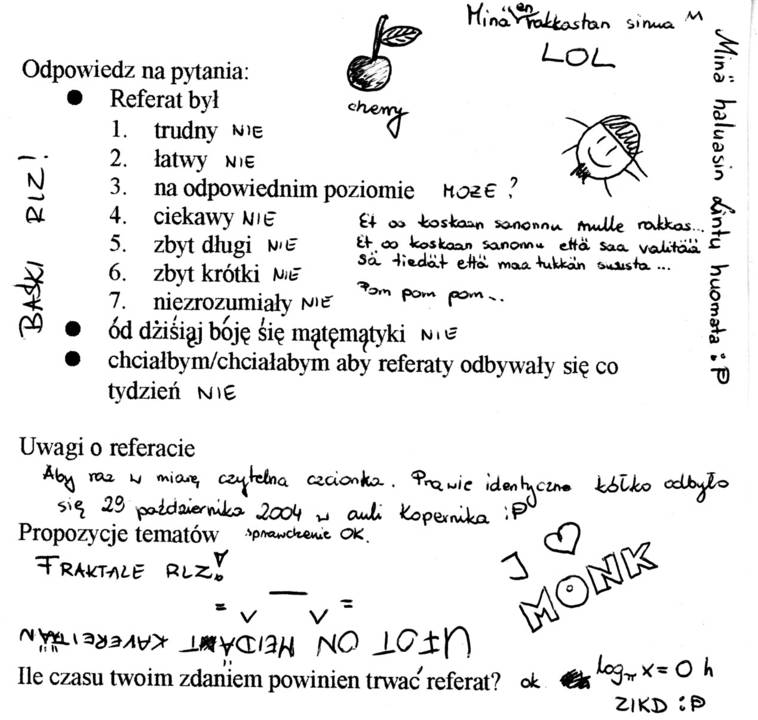 Minä en rakkastan sinua M
LOL
cherry
Odpowiedz na pytania:
Referat był
1. trudny NIE
2. łatwy NIE
3. na odpowiednim poziomie MOŻE ?
4. ciekawy NIE
5. zbyt długi NIE
6. zbyt krótki NIE
7. niezrozumiały NIE
ód dżiśiąj bóję śię mątęmątyki NIE
chciałbym/chciałabym aby referaty odbywały się co
tydzień NIE
Et oo koskaan sanonnu mulle rakkas...
Et oo koskaan sanonnu että saa valitää
Sä tiedät että maa tukkán susta ...
Pom pom pom...
Minä haluasin Lintu huomata :P
BAŚKI RLZ!
Uwagi o referacie
Aby raz w miarę czytelna czcionka. Prawie identyczne kółko odbyło
się 29 października 2004 w auli Kopernika :P
Propozycje tematów sprawdzenie OK.
FRAKTALE RLZ!
I ♡
MONK
= v — v =
NO HEIDÄN KAVEREITÄÄN
Ile czasu twoim zdaniem powinien trwać referat? ok logπ x = 0 h
ZIKD :P